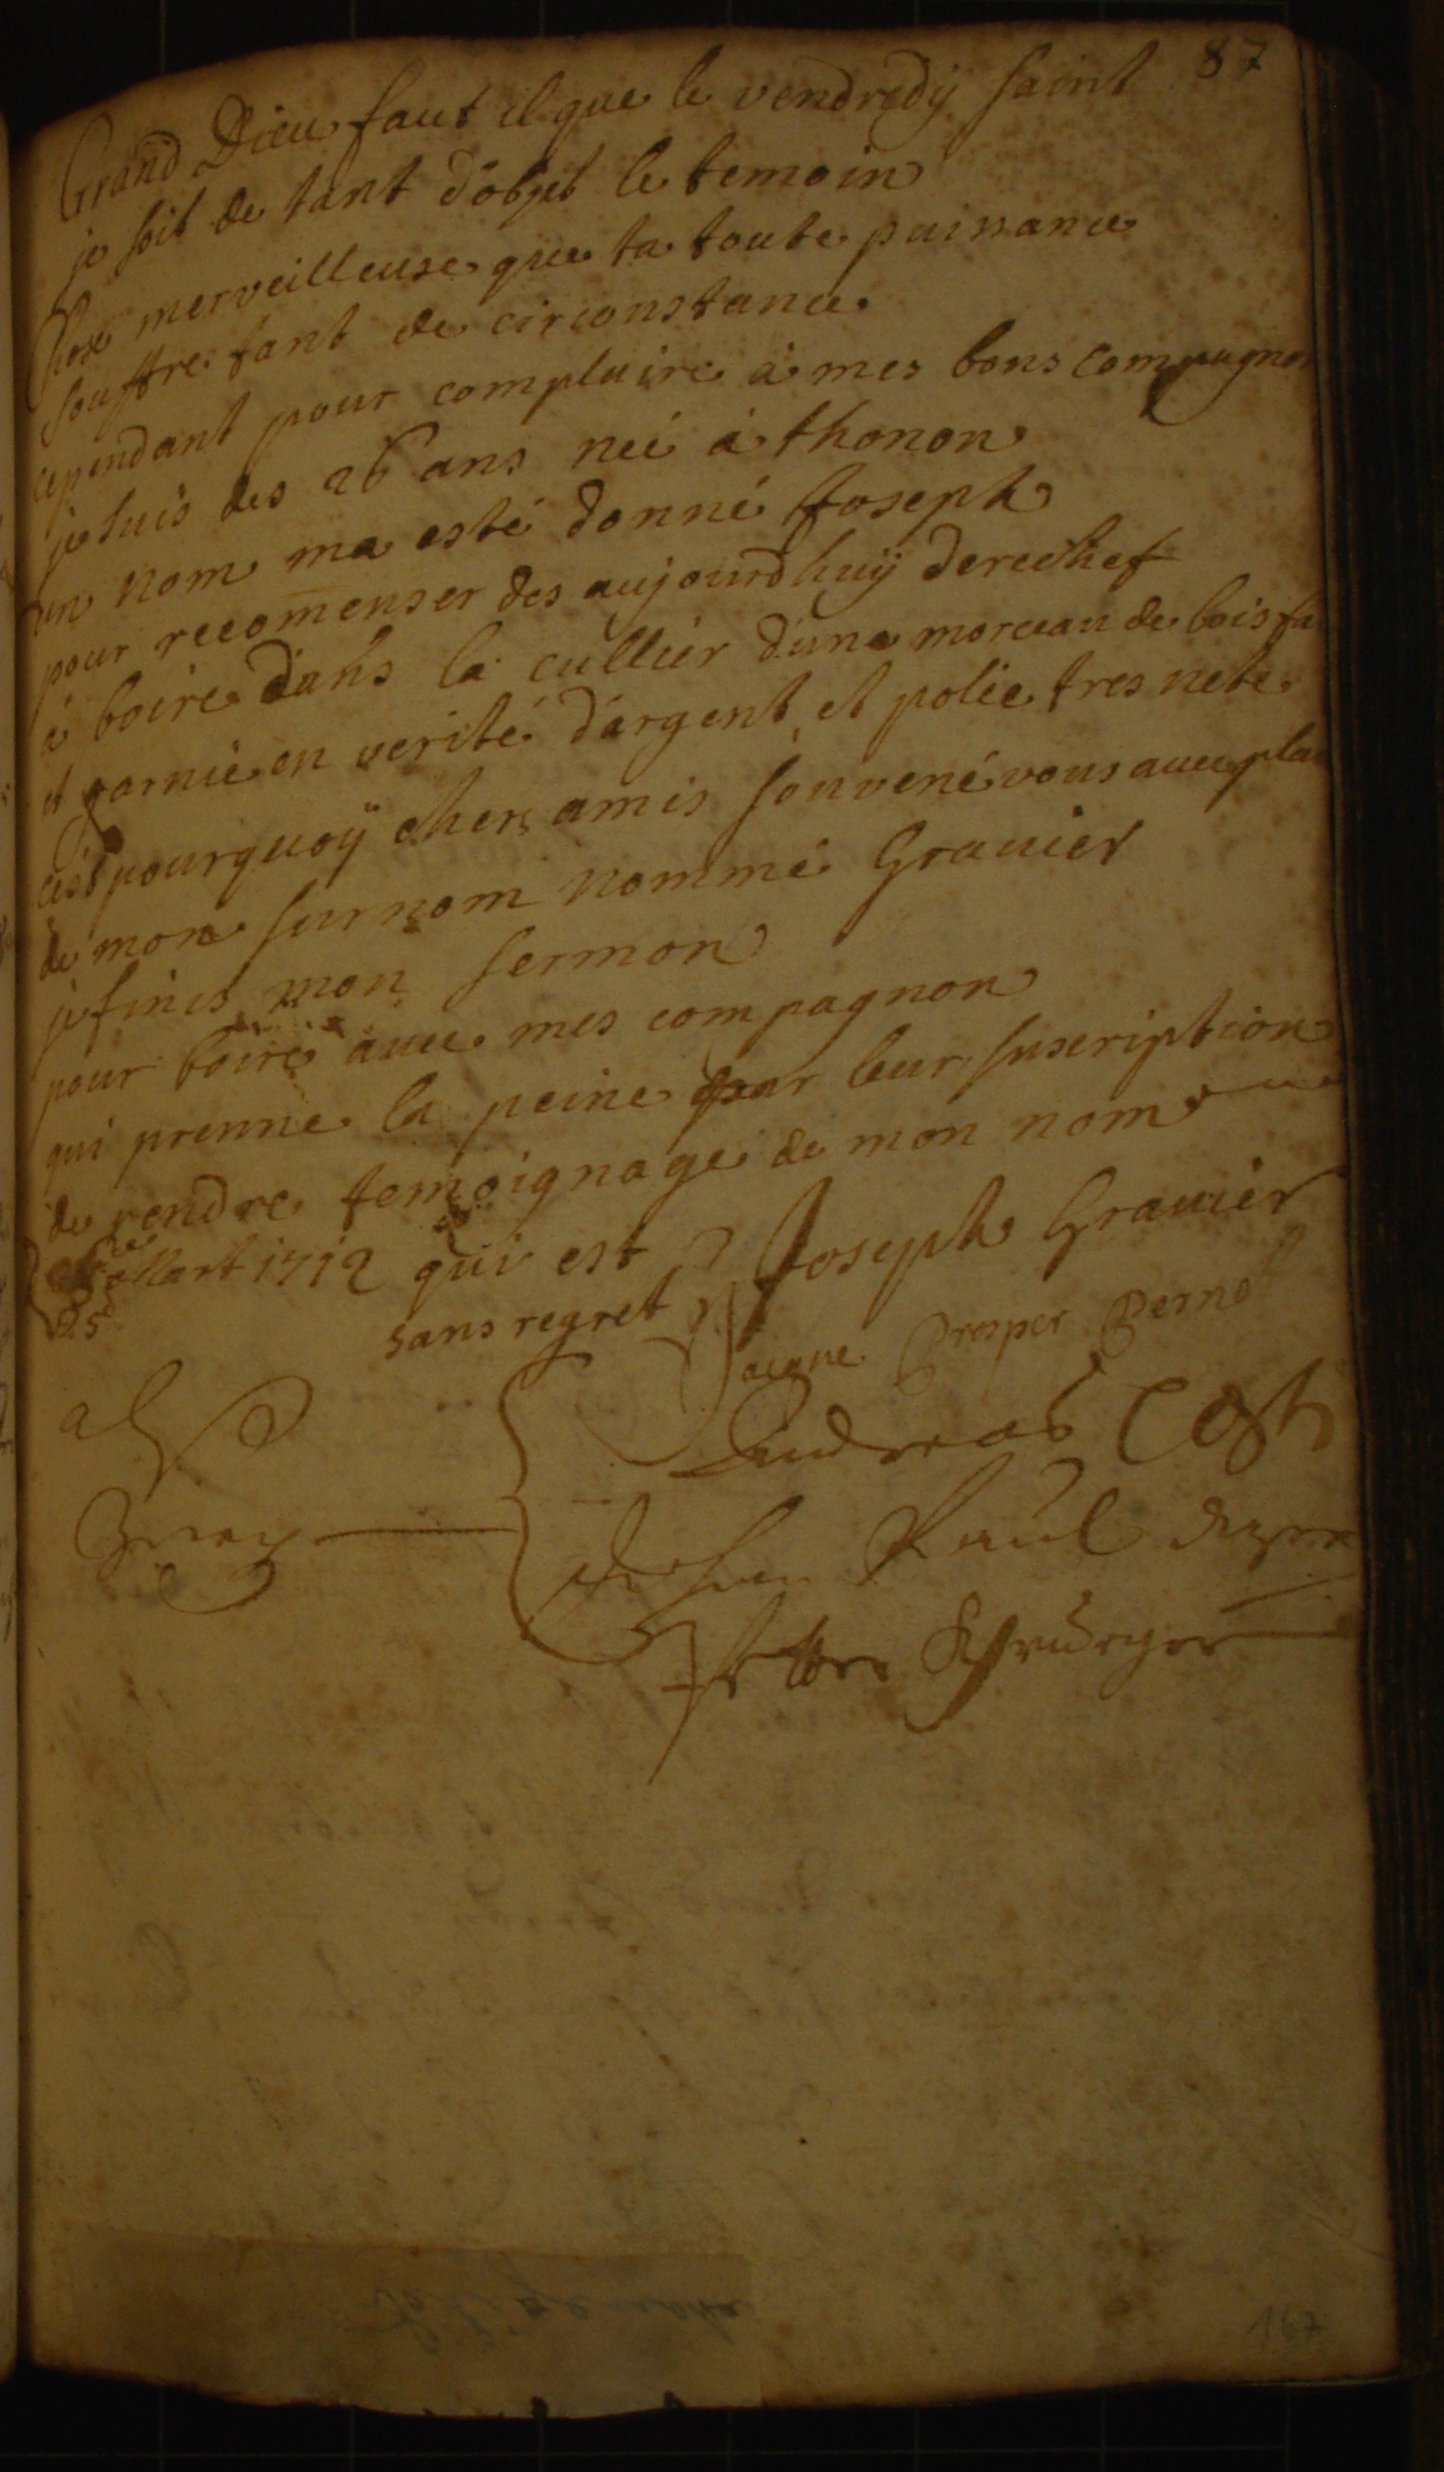 87
Grand Dieu faut il que le vendredÿ saint
je soit de tant d'objet le temoin
Chose merveilleuse que ta toute puissance
souffre tant de circonstance.
cependant pour complaire à mes bons compagnon
je suis des 26 ans neé à thonon
un nom ma esté donné Joseph
pour recomenser des aujourdhuÿ derechef
à boire dans la cullier d'une morceau de bois fa
et garnie en verité d'argent et polie tres nete.
c'est pourquoÿ chers amis souvené vous avec plai
de mon surnom nommé Gravier
je finis mon sermon
pour boire avec mes compagnon
qui prenne la peine par leur suscription
de rendre temoignage de mon nom
Mart 1712 qui est Joseph Gravier
25
sans regret
Jacque Prosper Perne
Andreas Cost
Zeug
Johan Paul
Petter
167